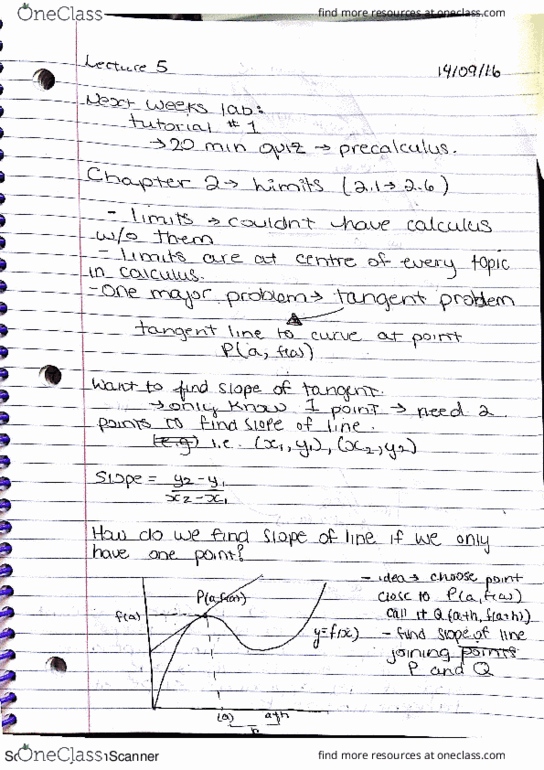 OneClass
find more resources at oneclass.com
Lecture 5
14/09/16
Next weeks lab:
tutorial #1
→ 20 min quiz → precalculus.
Chapter 2 → Limits (2.1→2.6)
- limits → couldn't have calculus
w/o them
- limits are at centre of every topic
in calculus.
- One major problem → tangent problem
tangent line to curve at point
P(a, f(a))
Want to find slope of tangent.
→ only know 1 point → need 2
points to find slope of line.
(e.g) i.e. (x₁, y₁), (x₂, y₂)
Slope = y₂ - y₁
x₂ - x₁
How do we find slope of line if we only
have one point?
- idea → choose point
close to P(a, f(a))
call it Q(a+h, f(a+h))
- find slope of line
joining points
P and Q
P(a, f(a))
f(a)
y=f(x)
(a)
a+h
h
OneClass
Scanner
find more resources at oneclass.com